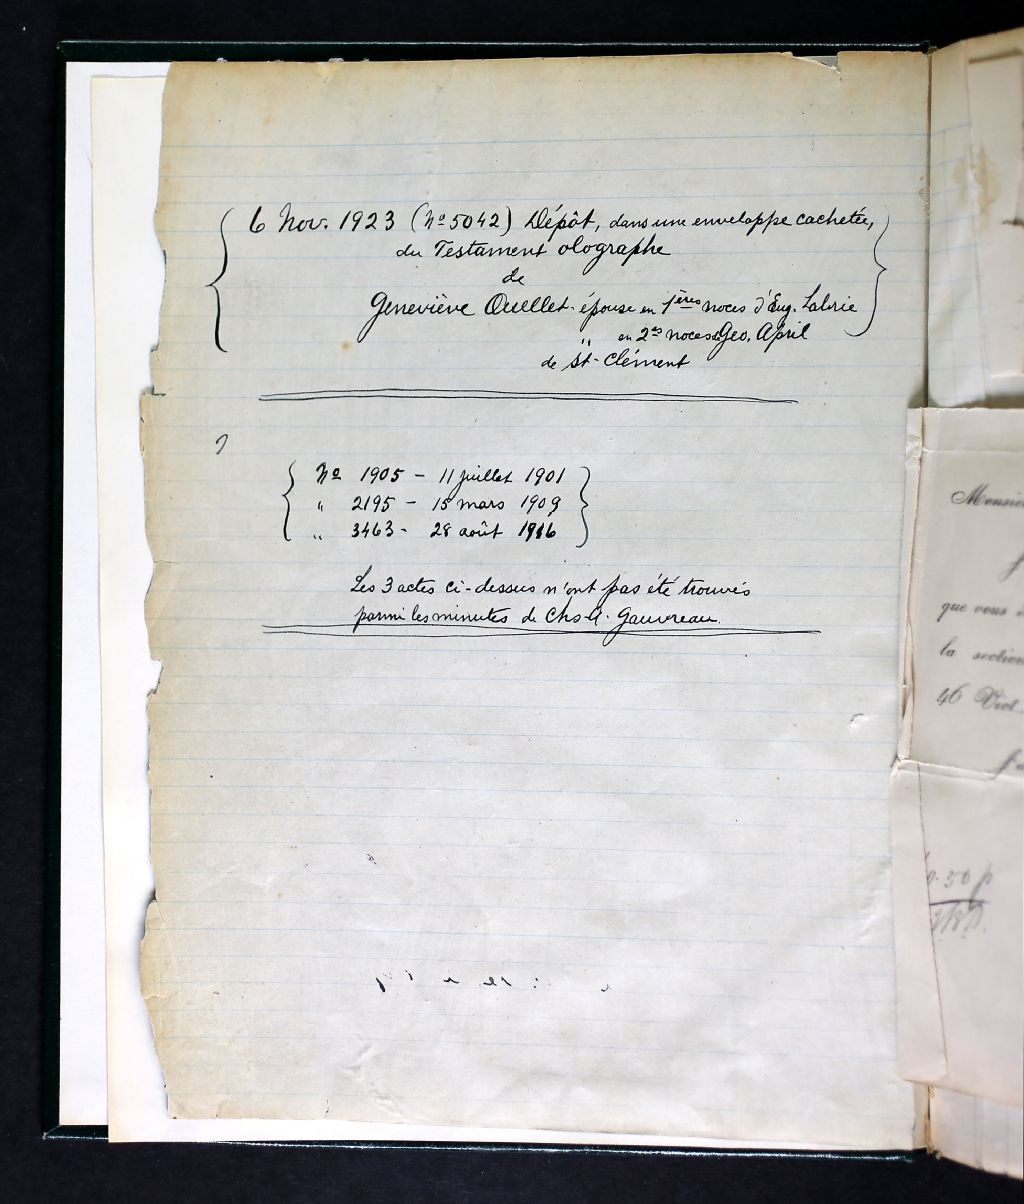 6 Nov. 1923 (No 5042) Dépôt, dans une enveloppe cachetée,
du Testament olographe
de
Geneviève Ouellet. épouse en 1ères noces d'Eug. Labrie
" en 2es noces de Geo. April
de St-Clément
?
No 1905 - 11 juillet 1901
" 2195 - 15 mars 1909
" 3463 - 28 août 1916
Les 3 actes ci-dessus n'ont pas été trouvés
parmi les minutes de Chs A. Gauvreau.
que vous
la section
46 Vict.